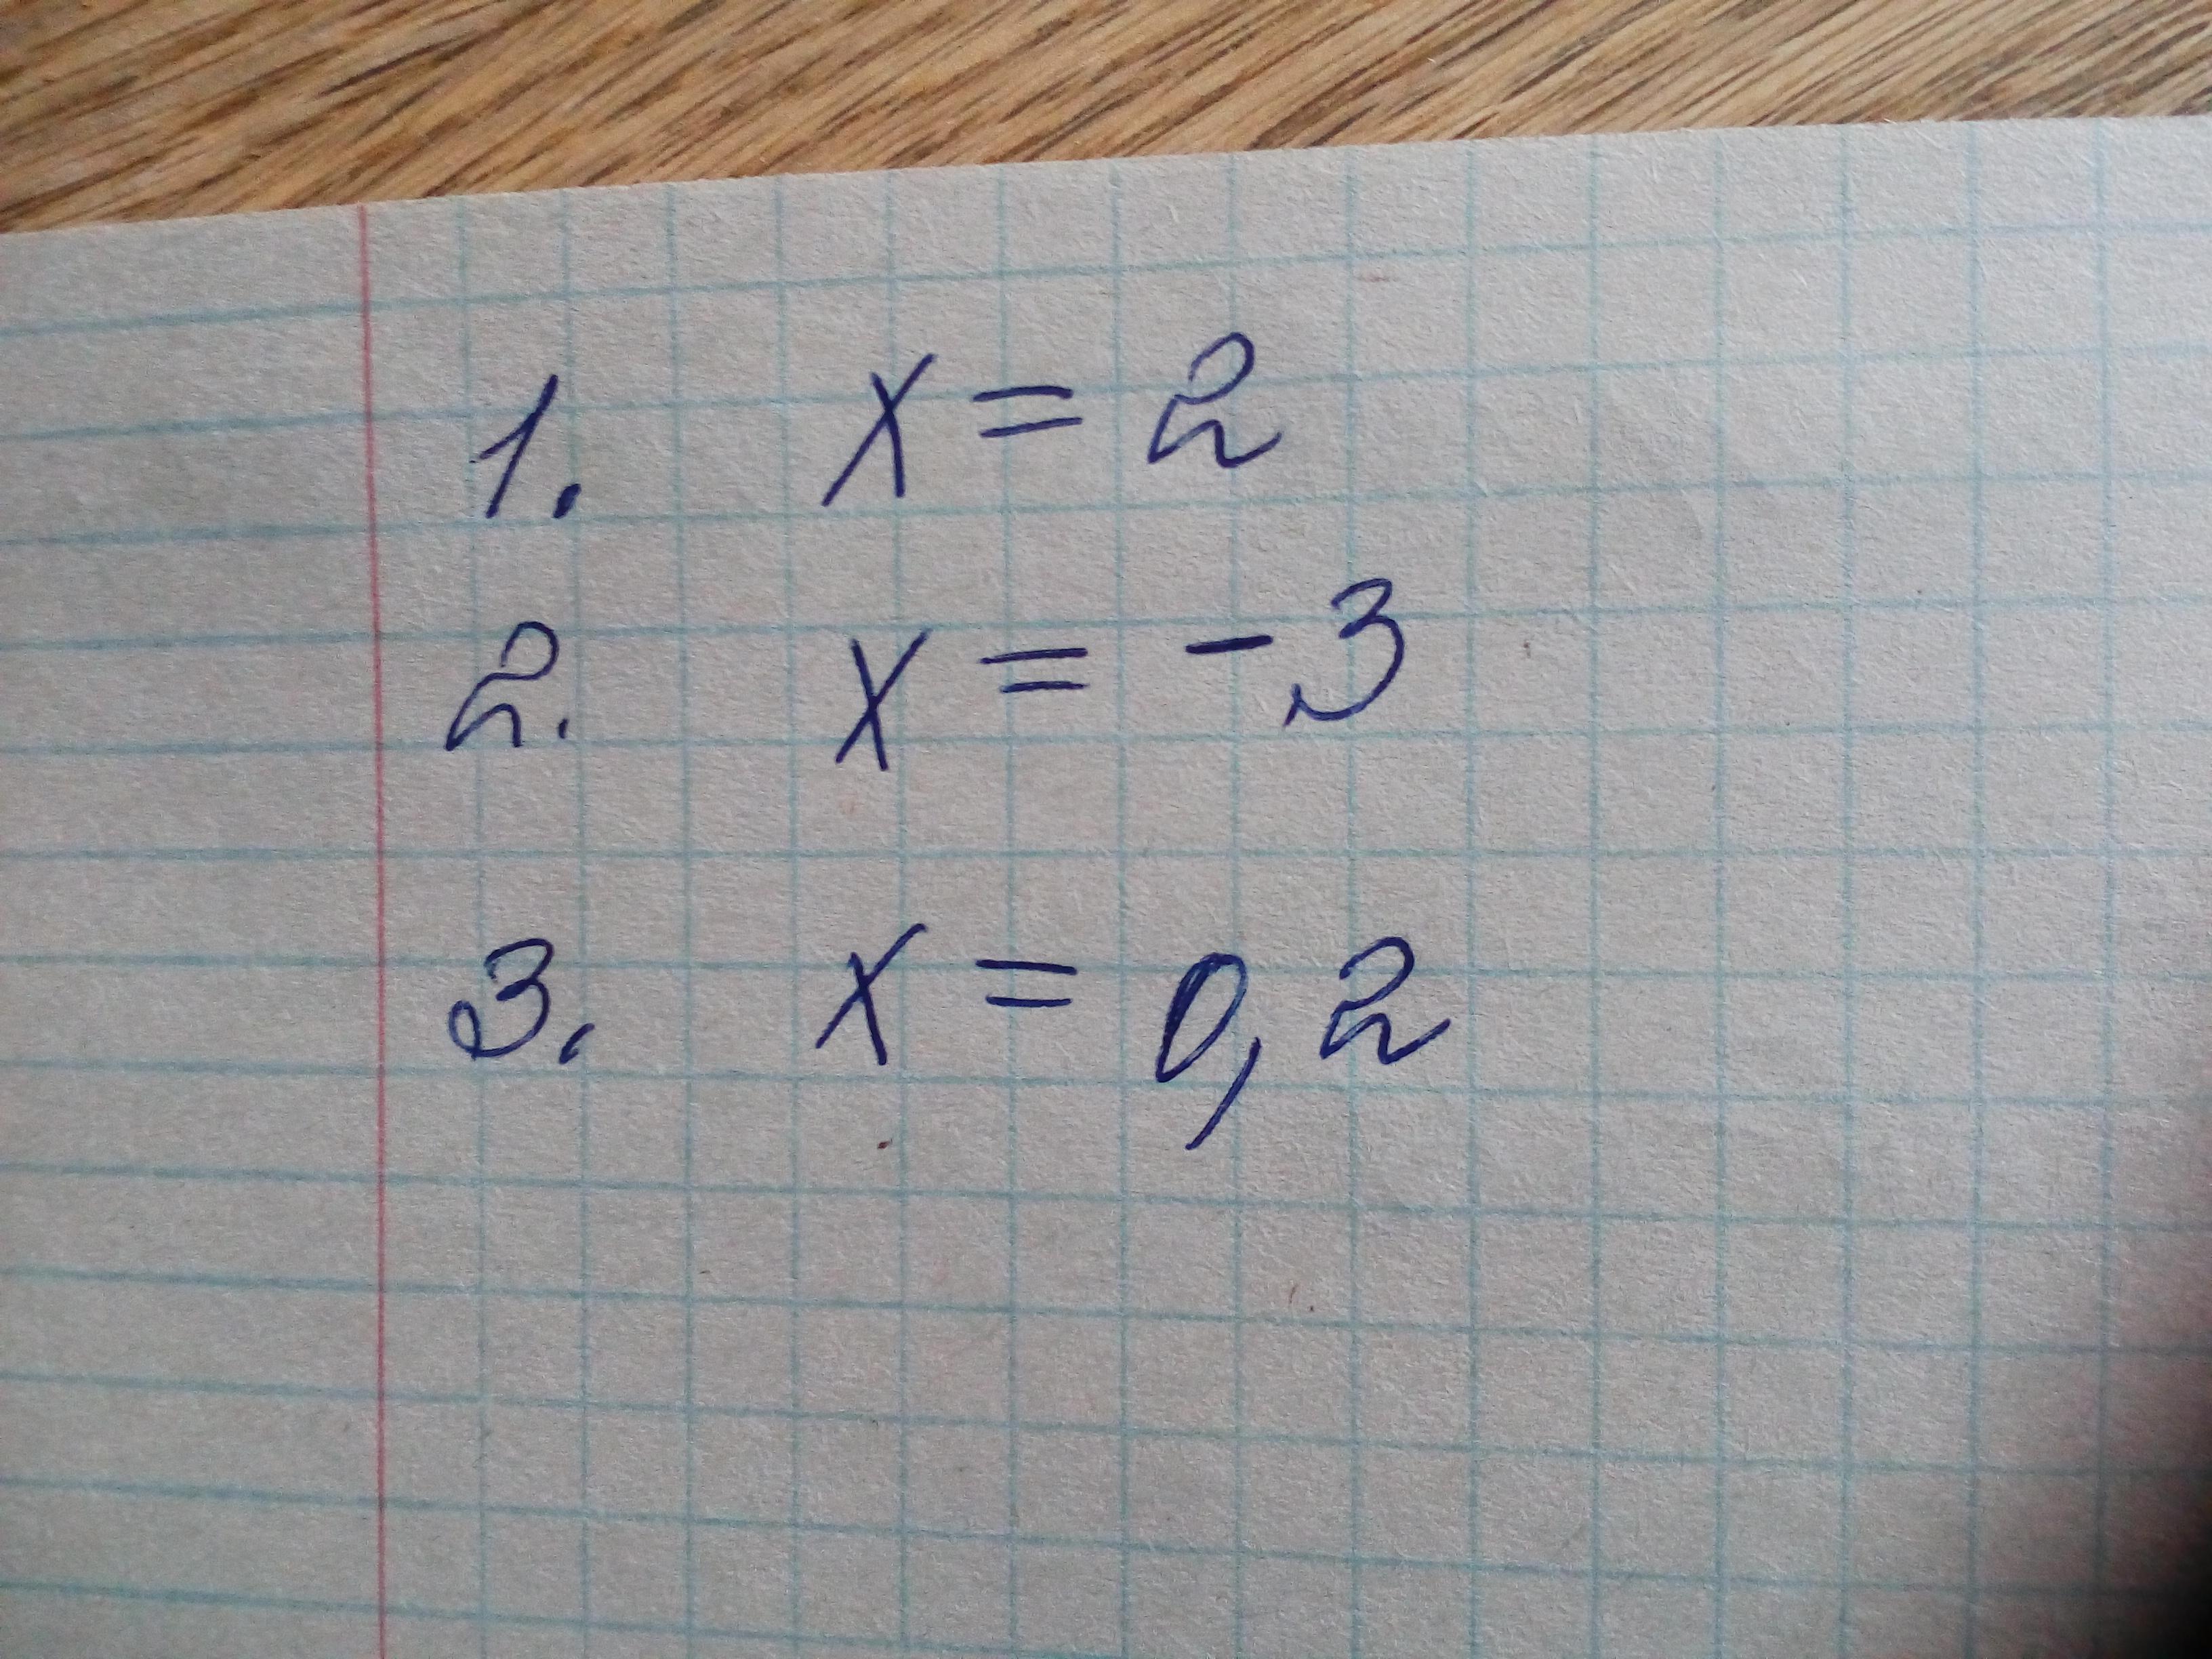 1. x = 2
2. x = -3
3. x = 0,2